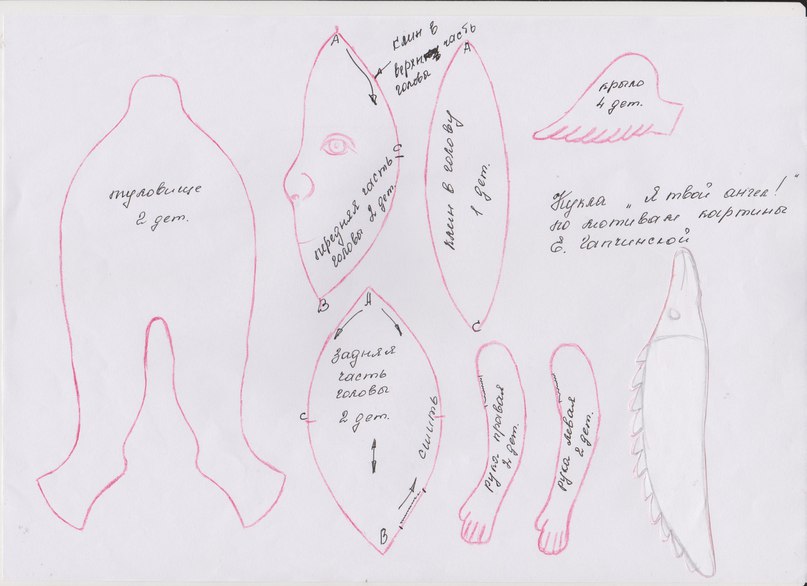 туловище
2 дет.
А
клин в
верхнюю часть
головы
передняя часть
головы 2 дет.
С
В
А
клин в голову
1 дет.
С
крыло
4 дет.
Кукла „Я твой ангел!"
по мотивам картины
Е. Гапчинской
А
Задняя
часть
головы
2 дет.
С
сшить
В
рука правая
2 дет.
рука левая
2 дет.